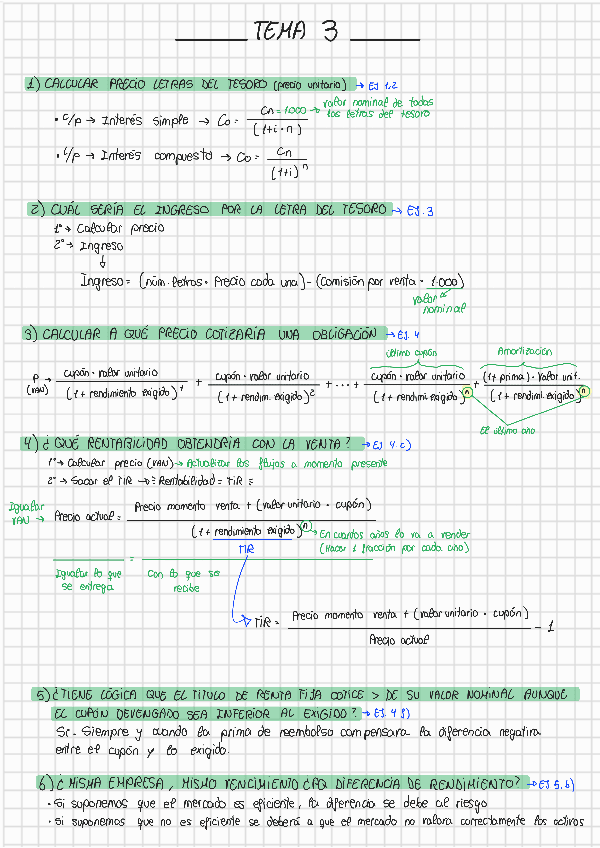 TEMA 3
1) CALCULAR PRECIO LETRAS DEL TESORO (precio unitario) → EJ 1,2
• C/p → Interés simple → Co = Cn = 1.000 / (1+i·n) → valor nominal de todas
las letras del tesoro
• L/p → Interés compuesto → Co = Cn / (1+i)^n
2) CUÁL SERÍA EL INGRESO POR LA LETRA DEL TESORO → EJ. 3
1º → Calcular precio
2º → Ingreso
↓
Ingreso = (núm. letras · Precio cada una) - (Comisión por venta · 1.000)
valor
nominal
3) CALCULAR A QUÉ PRECIO COTIZARÍA UNA OBLIGACIÓN → EJ. 4
último cupón Amortización
P (VAN) → cupón · valor unitario / (1 + rendimiento exigido)^1 + cupón · valor unitario / (1 + rendim. exigido)^2 + ... + cupón · valor unitario / (1 + rendim. exigido)^n + (1 + prima) · valor unit. / (1 + rendim. exigido)^n
El último año
4) ¿QUÉ RENTABILIDAD OBTENDRÍA CON LA VENTA? → EJ 4.c)
1º → Calcular precio (VAN) → Actualizar los flujos a momento presente
2º → Sacar el TIR → Rentabilidad = TIR =
Igualar
VAN → Precio actual = Precio momento venta + (valor unitario · cupón) / (1 + rendimiento exigido)^n
→ En cuantos años lo va a vender
(Hacer 1 fracción por cada año)
TIR
=
Igualar lo que
se entrega
Con lo que se
recibe
TIR = Precio momento venta + (valor unitario · cupón) / Precio actual - 1
5) ¿TIENE LÓGICA QUE EL TITULO DE RENTA FIJA COTICE > DE SU VALOR NOMINAL AUNQUE
EL CUPÓN DEVENGADO SEA INFERIOR AL EXIGIDO? → EJ. 4 f)
Sí - Siempre y cuando la prima de reembolso compensara la diferencia negativa
entre el cupón y lo exigido.
6) ¿MISMA EMPRESA, MISMO VENCIMIENTO ¿PQ DIFERENCIA DE RENDIMIENTO? → EJ 5.b)
• Si suponemos que el mercado es eficiente, la diferencia se debe al riesgo
• Si suponemos que no es eficiente se deberá a que el mercado no valora correctamente los activos